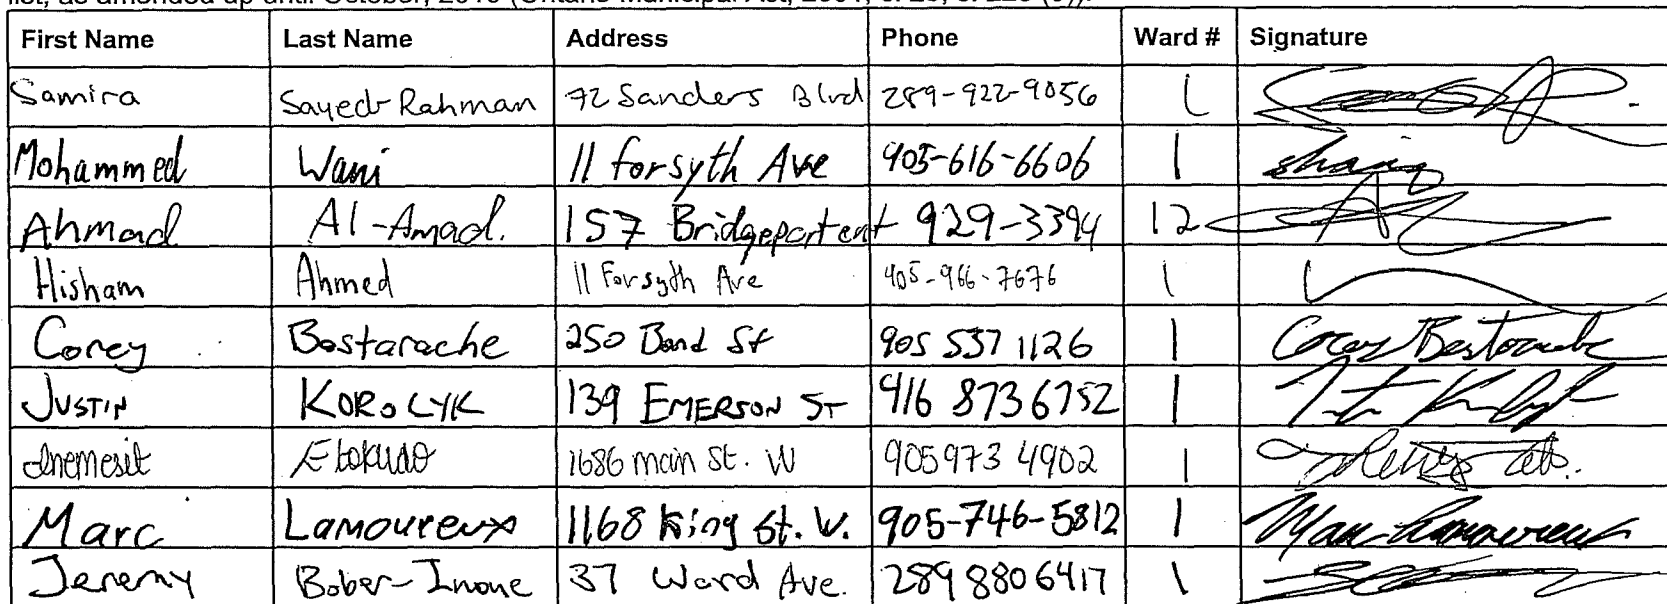 First Name Last Name Address Phone Ward # Signature
Samira Sayed-Rahman 72 Sanders Blvd 289-922-9056 1
Mohammed Wani 11 forsyth Ave 905-616-6606 1
Ahmad Al-Amad. 157 929-3394 12
Hisham Ahmed 11 Forsyth Ave 905-966-7676 1
Corey Bastarache 250 Bond St 905 537 1126 1 Corey Bastarache
JUSTIN KOROLYK 139 EMERSON ST 416 8736752 1
Inemesit Etokudo 1686 main St. W 905973 4902 1
Marc Lamoureux 1168 King St. W. 905-746-5812 1 Marc Lamoureux
Jeremy Bober-Inoue 37 Ward Ave. 289 8806417 1